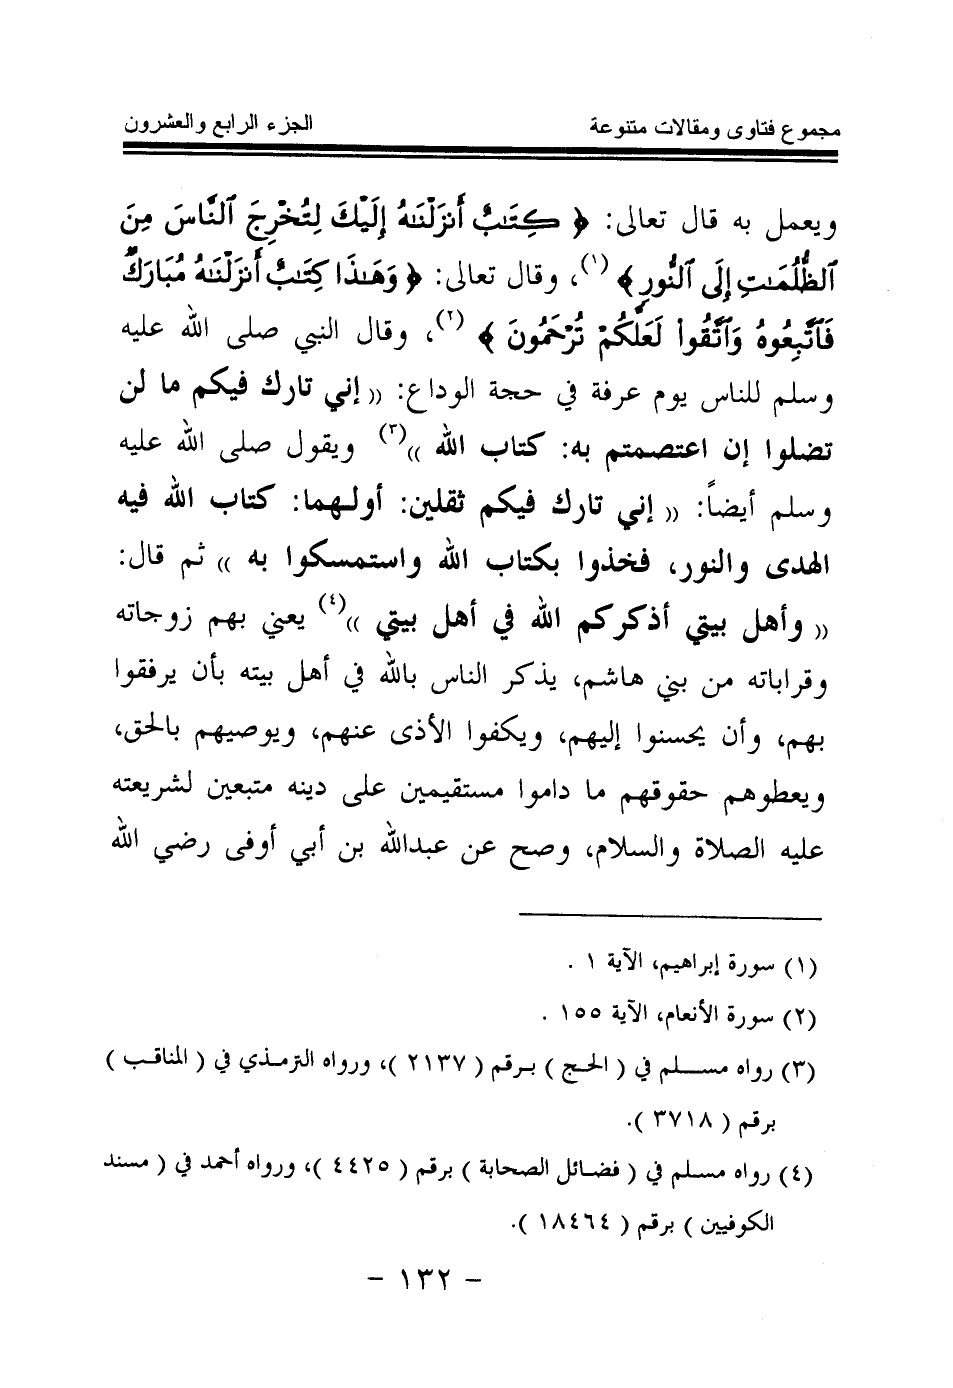 مجموع فتاوى ومقالات متنوعة الجزء الرابع والعشرون
ويعمل به قال تعالى: ﴿ كِتَٰبٌ أَنزَلْنَٰهُ إِلَيْكَ لِتُخْرِجَ ٱلنَّاسَ مِنَ
ٱلظُّلُمَٰتِ إِلَى ٱلنُّورِ ﴾(١)، وقال تعالى: ﴿ وَهَٰذَا كِتَٰبٌ أَنزَلْنَٰهُ مُبَارَكٌ
فَٱتَّبِعُوهُ وَٱتَّقُوا۟ لَعَلَّكُمْ تُرْحَمُونَ ﴾(٢)، وقال النبي صلى الله عليه
وسلم للناس يوم عرفة في حجة الوداع: (( إني تارك فيكم ما لن
تضلوا إن اعتصمتم به: كتاب الله ))(٣) ويقول صلى الله عليه
وسلم أيضاً: (( إني تارك فيكم ثقلين: أولهما: كتاب الله فيه
الهدى والنور، فخذوا بكتاب الله واستمسكوا به )) ثم قال:
(( وأهل بيتي أذكركم الله في أهل بيتي ))(٤) يعني بهم زوجاته
وقراباته من بني هاشم، يذكر الناس بالله في أهل بيته بأن يرفقوا
بهم، وأن يحسنوا إليهم، ويكفوا الأذى عنهم، ويوصيهم بالحق،
ويعطوهم حقوقهم ما داموا مستقيمين على دينه متبعين لشريعته
عليه الصلاة والسلام، وصح عن عبدالله بن أبي أوفى رضي الله
(١) سورة إبراهيم، الآية ١ .
(٢) سورة الأنعام، الآية ١٥٥ .
(٣) رواه مسلم في ( الحج ) برقم ( ٢١٣٧ )، ورواه الترمذي في ( المناقب )
برقم ( ٣٧١٨ ).
(٤) رواه مسلم في ( فضائل الصحابة ) برقم ( ٤٤٢٥ )، ورواه أحمد في ( مسند
الكوفيين ) برقم ( ١٨٤٦٤ ).
- ١٣٢ -